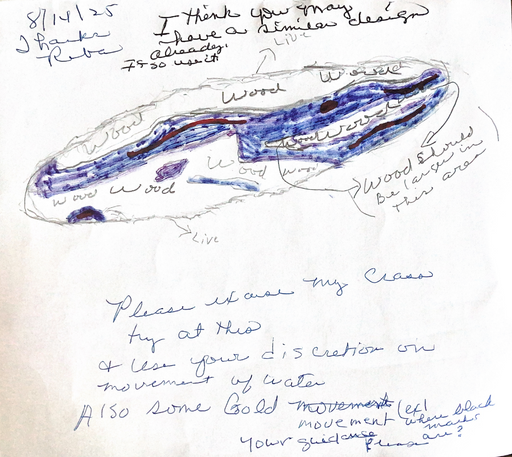 8/14/25
Thanks
Reba
I think you may
have a similar design
already.
If so use it
Live
Wood
Wood
Wood
Wood
Wood
Wood
Wood
Wood
Wood
Wood Should
Be larger in
this area
Live
Please excuse my Crass
try at this
& Use your discretion on
movement of water
Also some Gold movement (ex)
movement where black
marks
are?
Your guidance Please